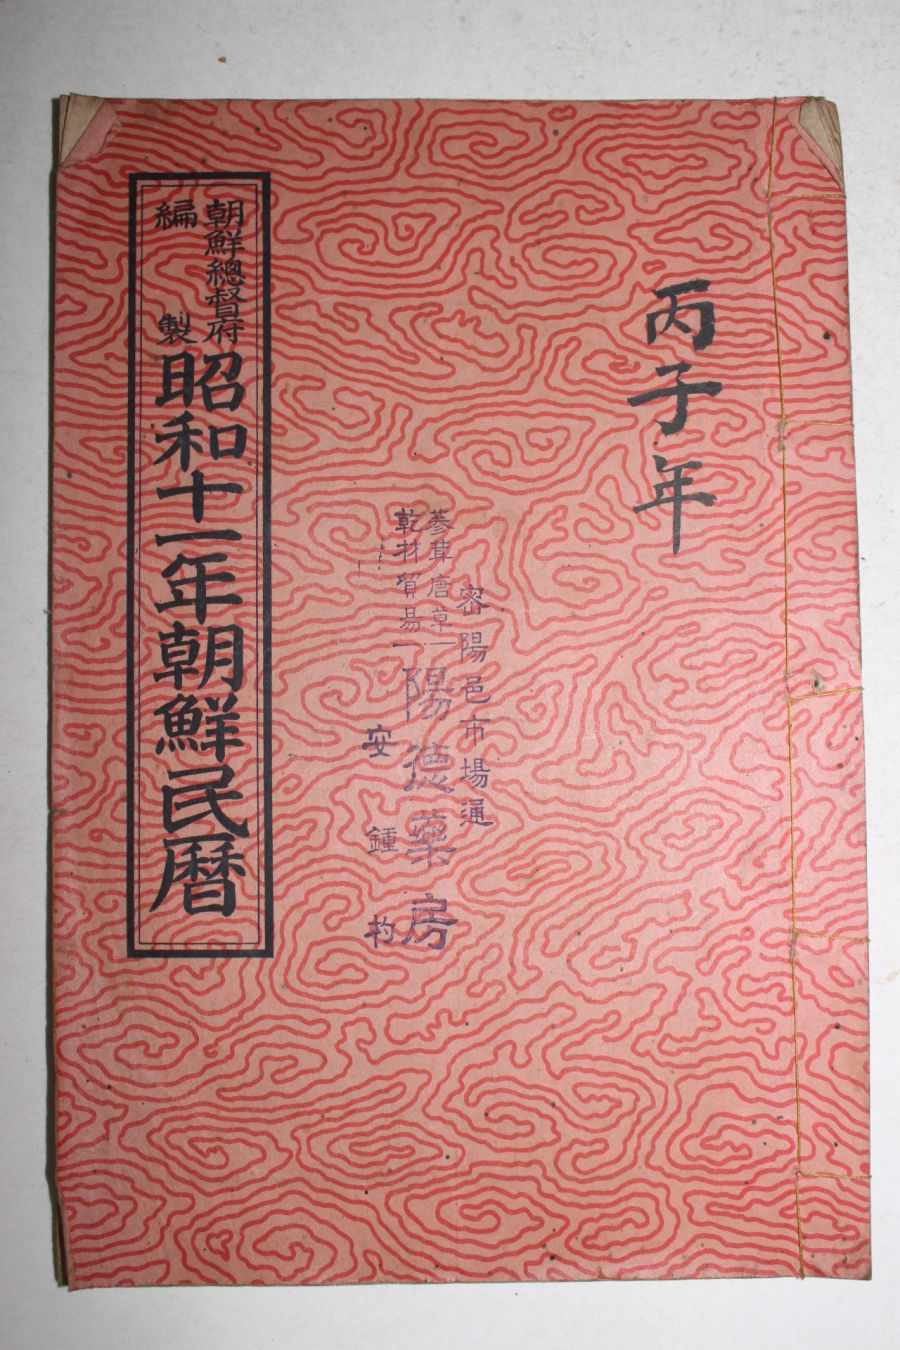 丙子年
密陽邑市場通
蔘茸唐草
乾材貿易
一陽德藥房
安鍾
朝鮮總督府
編製
昭和十一年朝鮮民曆